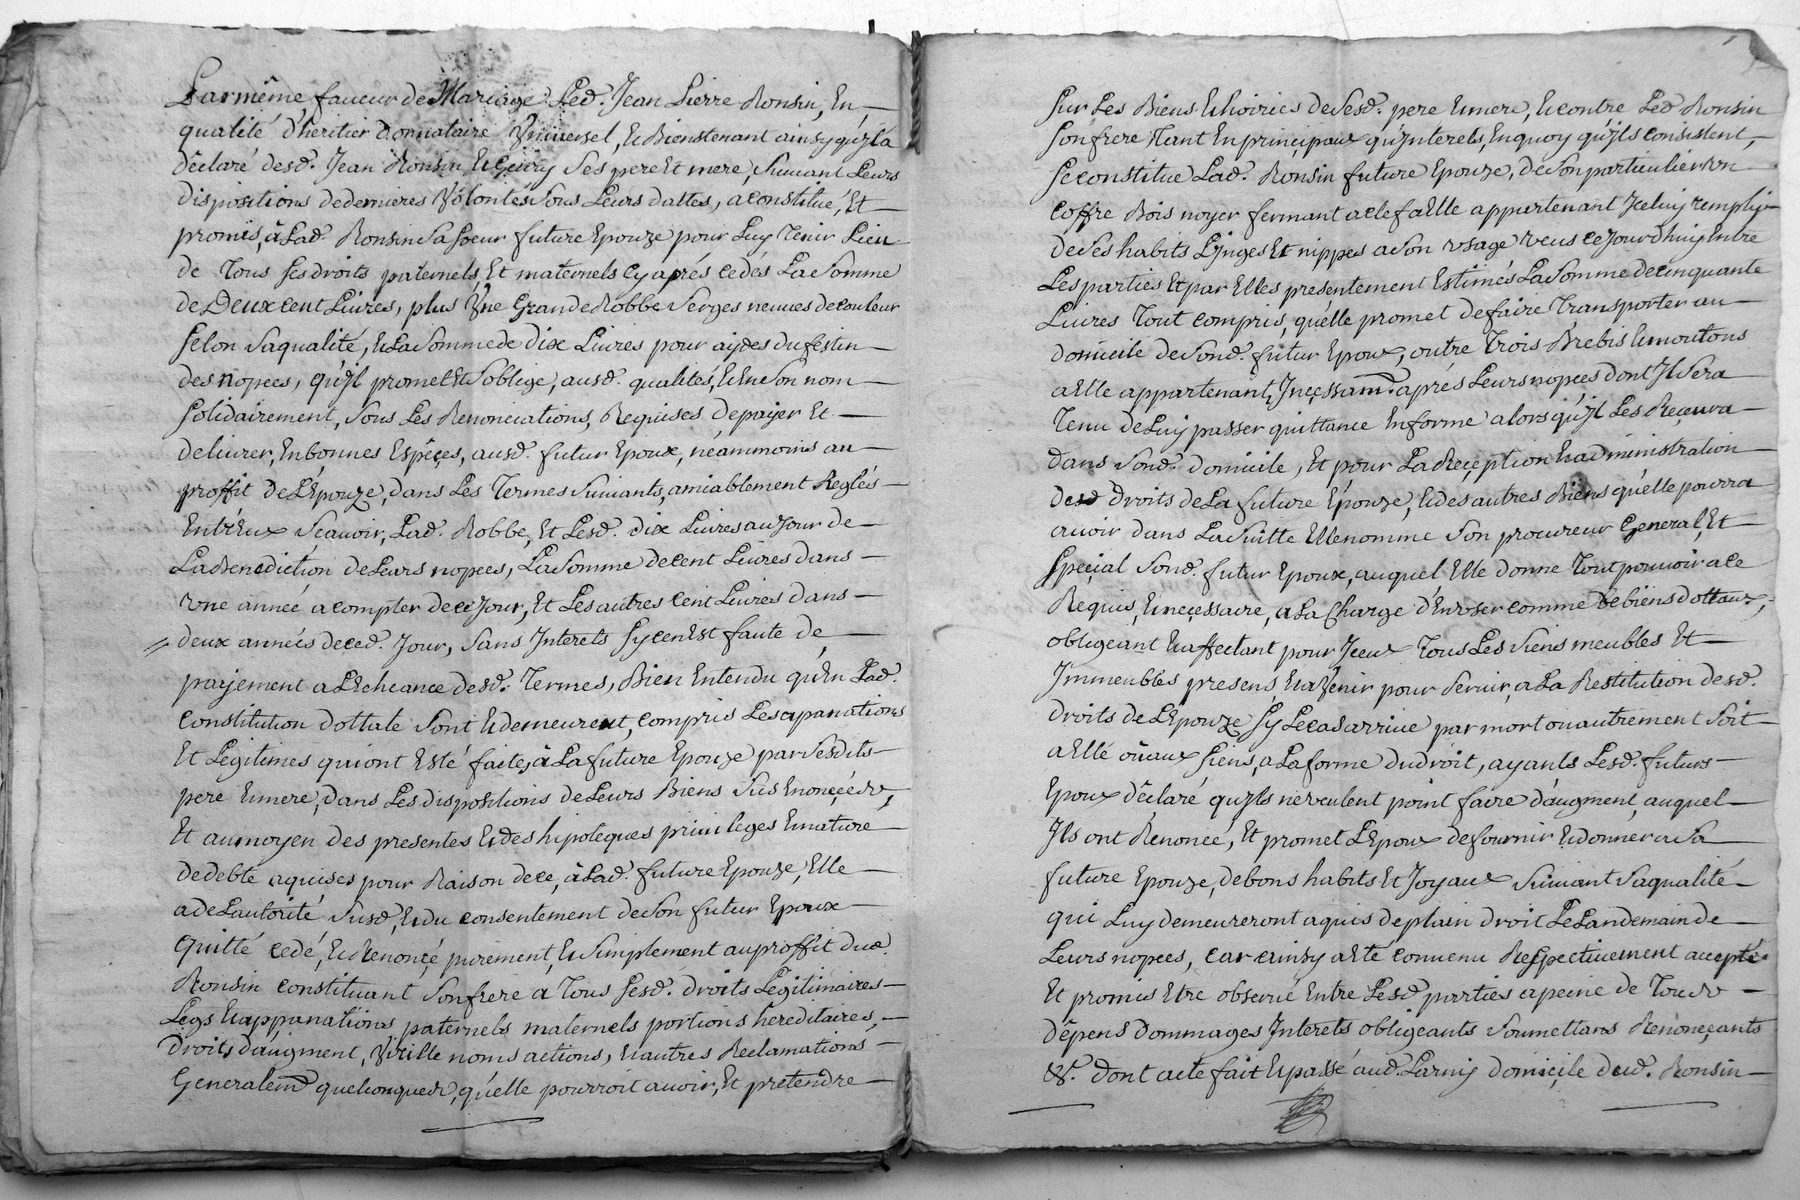 Par même faveur de Mariage Led. Jean Pierre Ronsin, En
qualité D'heritier Donnataire Universel, Et Bienstenant ainsy qu'jl a
Déclaré desd. Jean Ronsin Et Guiry Ses pere Et mere, Suivant Leurs
Dispositions de dernieres Volontés Sous Leurs dattes, a Constitué, Et
promis, à Lad. Ronsin Sa Soeur future Epouze pour Luy Tenir Lieu
de Tous Ses droits paternels, Et maternels cy aprés cedés La Somme
de Deux cent Livres, plus Une Grande Robbe Serges neuves de couleur
Selon Sa qualité, Et La Somme de Dix Livres pour aydes du festin
des nopces, qu'jl promet Et S'oblige, ausd. qualités, Et En Son nom
Solidairement, Sous Les Renonciations Requises De payer Et
delivrer, En bonnes Espêçes, ausd. futur Epoux, néammoins au
proffit de L'Epouze, dans Les Termes Suivants, amiablement Reglés
Entr'Eux Scavoir, Lad. Robbe, Et Lesd. dix Livres au Jour de
La Benediction de Leurs nopces, La Somme de cent Livres dans
Une année a compter de ce Jour, Et Les autres cent Livres dans
deux années de ced. Jour, Sans Interets Sy ce n'Est faute de
payement a L'Echeance desd. Termes, Bien Entendu qu'En Lad.
Constitution dottale Sont Et demeurent, compris Les apanations
Et Legitimes qui ont Esté faites, à La future Epouze par Sesdits
pere Et mere, dans Les dispositions de Leurs Biens Sus Enonçées,
Et au moyen des presentes Et des hipoteques privileges Et nature
de debte aquises pour Raison de ce, à Lad. future Epouze, Elle
a de L'autorité Susd. Et du consentement de Son futur Epoux
Quitté cedé, Et Renonçé purement, Et Simplement au proffit dud.
Ronsin constituant Son frere a Tous Sesd. droits Legitimaires
Legs Et appanations paternels maternels portions hereditaires,
Droits d'augment, Virille noms actions, Et autres Reclamations
Generalemt. quelconques, qu'elle pourroit avoir, Et pretendre
Sur Les Biens Et hoiries de Sesd. pere Et mere, Et contre Led Ronsin
Son frere Tant En principaux qu'Interets, En quoy qu'jls consistent,
Se constitue Lad. Ronsin future Epouze, de Son particulier Un
Coffre Bois noyer fermant a clef a Elle appartenant Jceluy remply
de Ses habits Linges Et nippes a Son Usage Veus ce Jourd'huy Entre
Les parties Et par Elles presentement Estimés La Somme de cinquante
Livres Tout compris, qu'elle promet de faire Transporter au
domicile de Sond. futur Epoux, outre Trois Brebis Et moutons
a Elle appartenant, Inçessamt. aprés Leurs nopces dont Jl Sera
Tenu de Luy passer quittance En forme alors qu'jl Les Recevra
dans Sond. domicile, Et pour La Reçeption Et administration
desd Droits de La future Épouze, Et des autres Biens qu'elle pourra
avoir dans La Suitte Elle nomme Son procureur General, Et
Speçial Sond. futur Epoux, auquel Elle donne Tout pouvoir a ce
Requis, Et neçessaire, a La Charge d'En User comme De biens dottaux,
obligeant Et affectant pour Jceux Tous Les Siens meubles Et
Jmmeubles presens Et a Venir pour Servir, a La Restitution desd.
Droits de L'Epouze Sy Le cas arrive par mort ou autrement Soit
a Elle où aux Siens, a La forme du droit, ayants Lesd. futurs
Epoux déclaré qu'jls ne veulent point faire d'augment, auquel
Jls ont Renoncé, Et promet L'Epoux de fournir Et donner a Sa
future Epouze, de bons habits Et Joyaux Suivant Sa qualité
qui Luy demeureront aquis de plain droit Le Landemain de
Leurs nopces, car ainsy a Eté convenu Respectivement accepté
Et promis Etre observé Entre Lesd parties a peine de Tous
dépens Dommages Interets obligeants Soumettans Renonçants
&. Dont acte fait Et passé aud. Larnij Domiçile dud. Ronsin